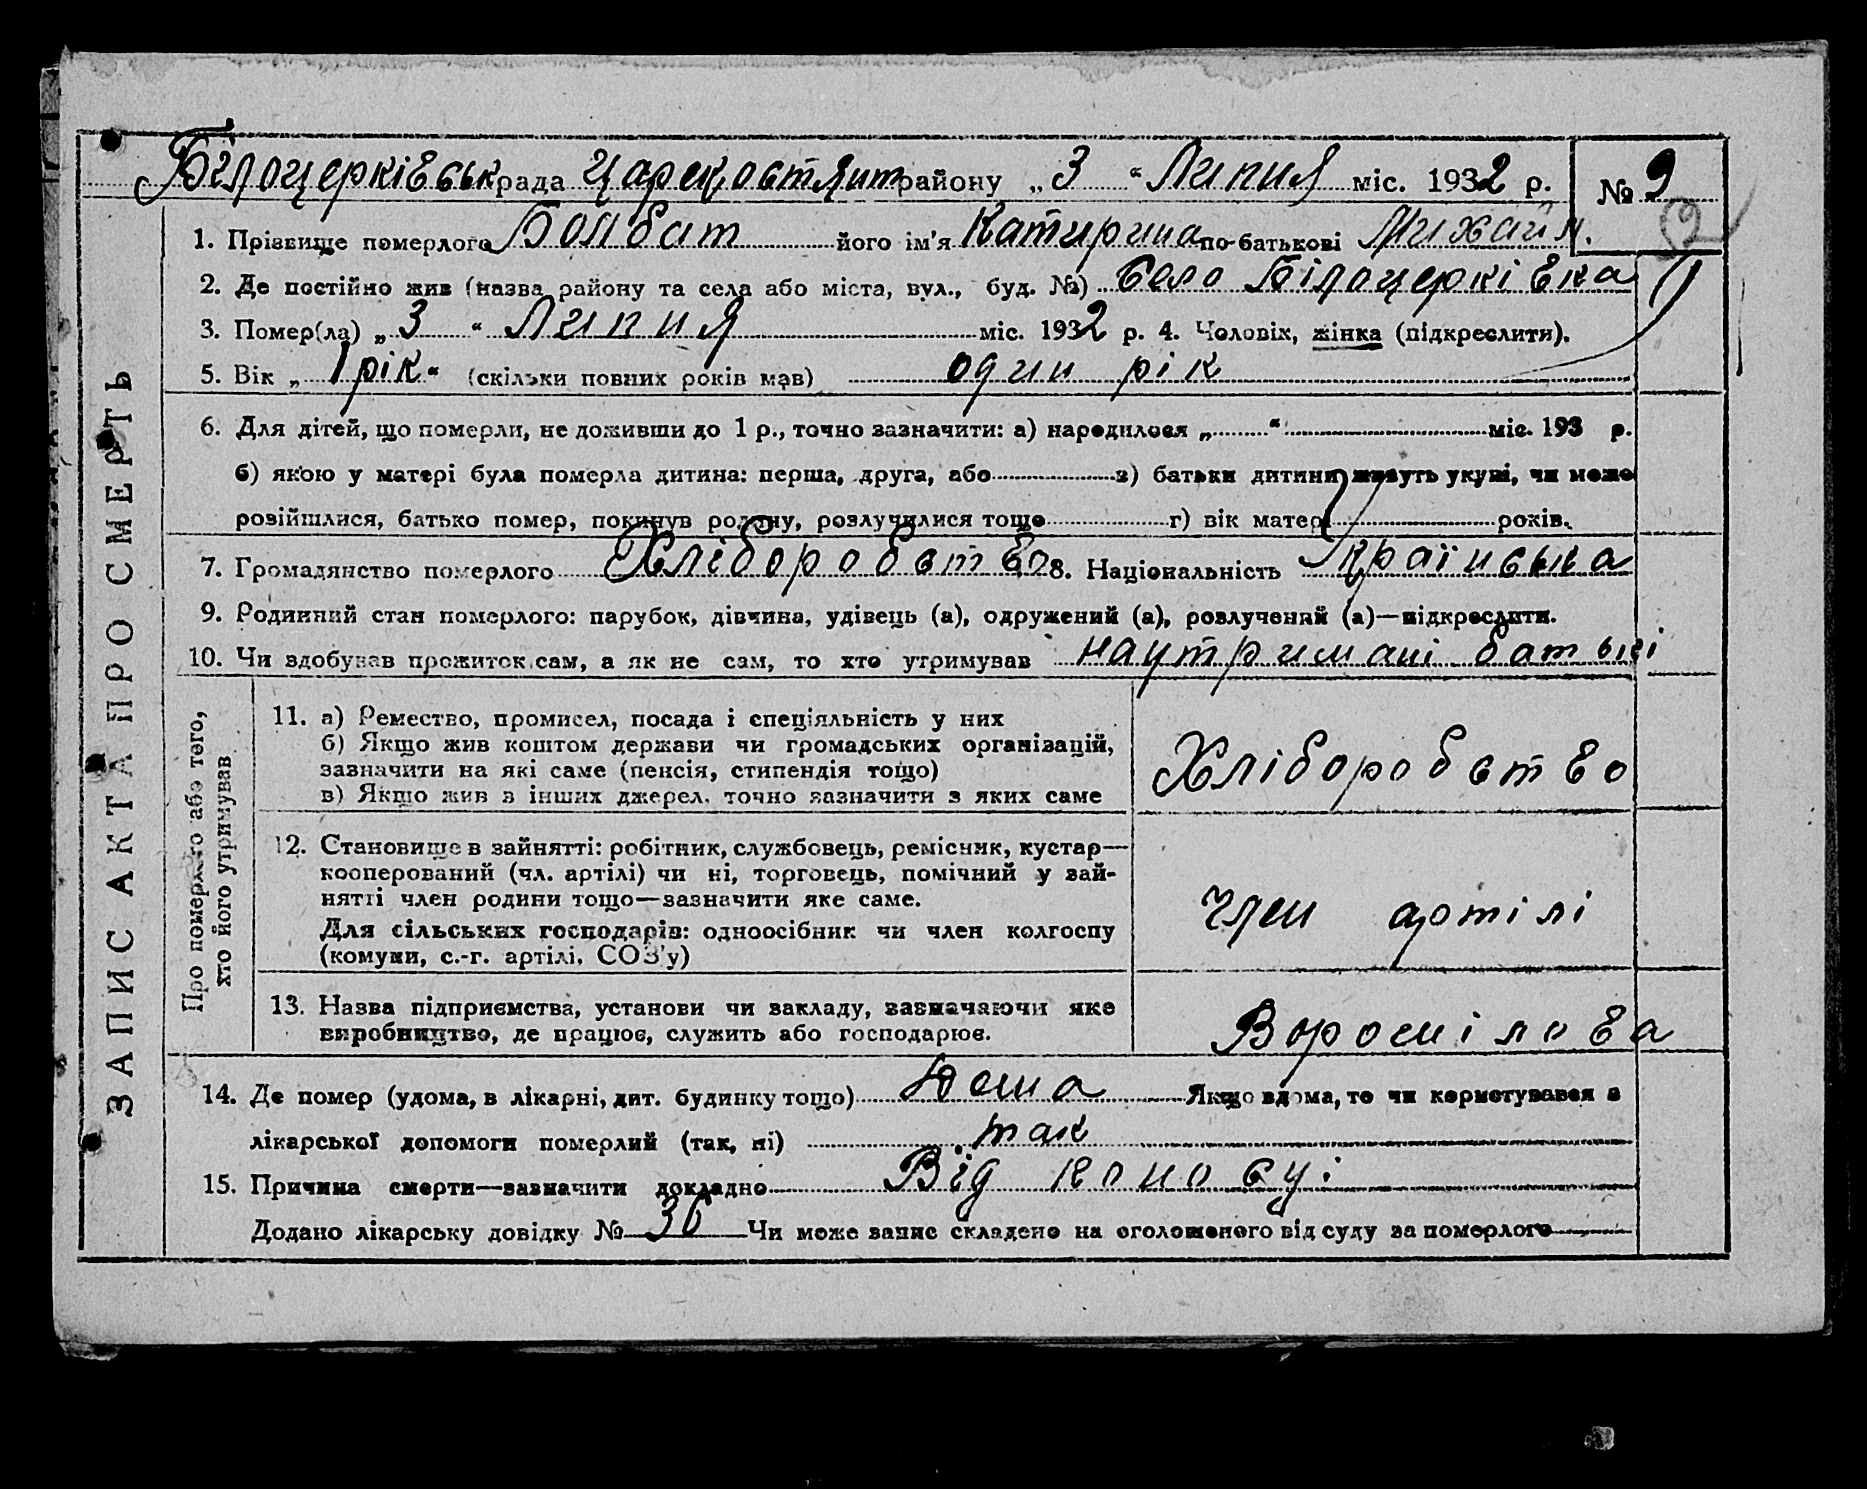 Білоцерківськ рада Царекостянт району „3“ Липня міс. 1932 р. № 9
2
1. Прізвище померлого Болбат його ім'я Катирина по-батькові Михайл.
2. Де постійно жив (назва району та села або міста, вул., буд. №) Село Білоцерківка
3. Помер(ла) „3“ Липня міс. 1932 р. 4. Чоловік, жінка (підкреслити).
5. Вік „1 рік“ (скільки повних років мав) один рік
6. Для дітей, що померли, не доживши до 1 р., точно зазначити: а) народилося „ “ міс. 193 р.
б) якою у матері була померла дитина: перша, друга, або в) батьки дитини живуть укупі, чи може
розійшлися, батько помер, покинув родину, розлучилися тощо г) вік матері років.
7. Громадянство померлого Хліборобство 8. Національність Українська
9. Родинний стан померлого: парубок, дівчина, удівець (а), одружений (а), розлучений (а)—підкреслити.
10. Чи здобував прожиток сам, а як не сам, то хто утримував на утримані батькі
ЗАПИС АКТА ПРО СМЕРТЬ
Про померлого або того,
хто його утримував
11. а) Ремество, промисел, посада і спеціяльність у них
б) Якщо жив коштом держави чи громадських організацій,
зазначити на які саме (пенсія, стипендія тощо)
в) Якщо жив з інших джерел, точно зазначити з яких саме
Хліборобство
12. Становище в зайнятті: робітник, службовець, ремісник, кустар—
кооперований (чл. артілі) чи ні, торговець, помічний у зай-
нятті член родини тощо—зазначити яке саме.
Для сільських господарів: одноосібник чи член колгоспу
(комуни, с.-г. артілі, СОЗ'у)
Член артілі
13. Назва підприємства, установи чи закладу, зазначаючи яке
виробництво, де працює, служить або господарює.
Ворошілова
14. Де помер (удома, в лікарні, дит. будинку тощо) Дома Якщо вдома, то чи користувався з
лікарської допомоги померлий (так, ні) так
15. Причина смерти—зазначити докладно Від поносу
Додано лікарську довідку № 36 Чи може запис складено на оголошеного від суду за померлого